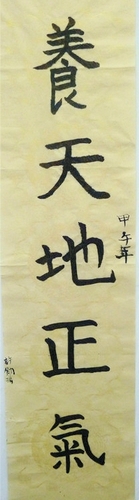 養天地正氣
甲午年